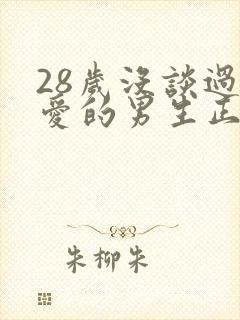 28歲沒談過
愛的男生正
朱柳朱